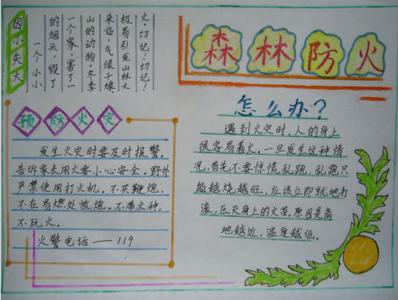 森林防火
因小失大
一个小小
的烟头，毁了
一个家，害了一
山的动物。冬季
来临，气候干燥
极易引发山林大
火，切记！切记！
预防火灾
发生火灾时要及时报警。
告诉家长用火要小心安全，野外
严禁使用打火机。不买鞭炮，
不在易燃处放炮。不带火种，
不玩火。
火警电话——119
怎么办？
遇到火灾时，人的身上
很容易着火，一旦发生这种情
况，首先不要惊慌乱跑，乱跑只
能越烧越旺，应该立即就地打
滚，压灭身上的火苗。原因是离
地越近，温度越低。